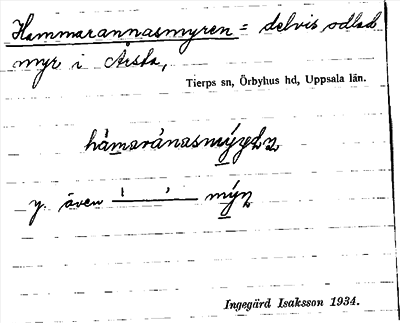 Hammarannasmyren = delvis odlad
myr i Årsta,
Tierps sn, Örbyhus hd, Uppsala län.
y. även
Ingegärd Isaksson 1934.